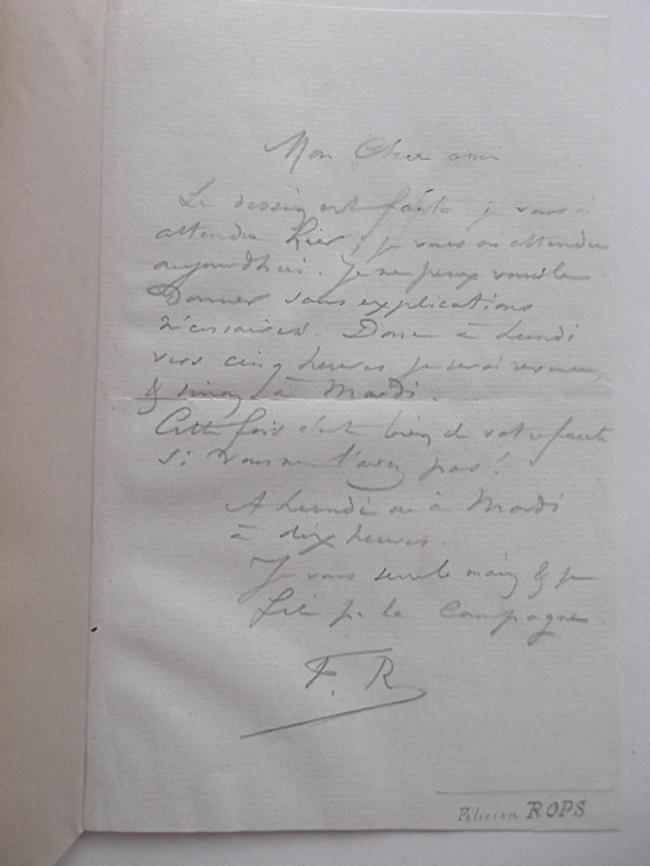 Mon Cher ami
Le dessin est faite. je vous ai
attendu hier, je vous ai attendu
aujourdhui. Je ne peux vous le
Donner sans explications
nécessaires. Donc à Lundi
vers cinq heures je serai revenu,
& sinon à Mardi.
Cette fois c'est bien de votre faute
si vous ne l'avez pas!
A Lundi ou à Mardi
à dix heures.
Je vous serre la main & je
file p. la Campagne.
F. R
Félicien ROPS